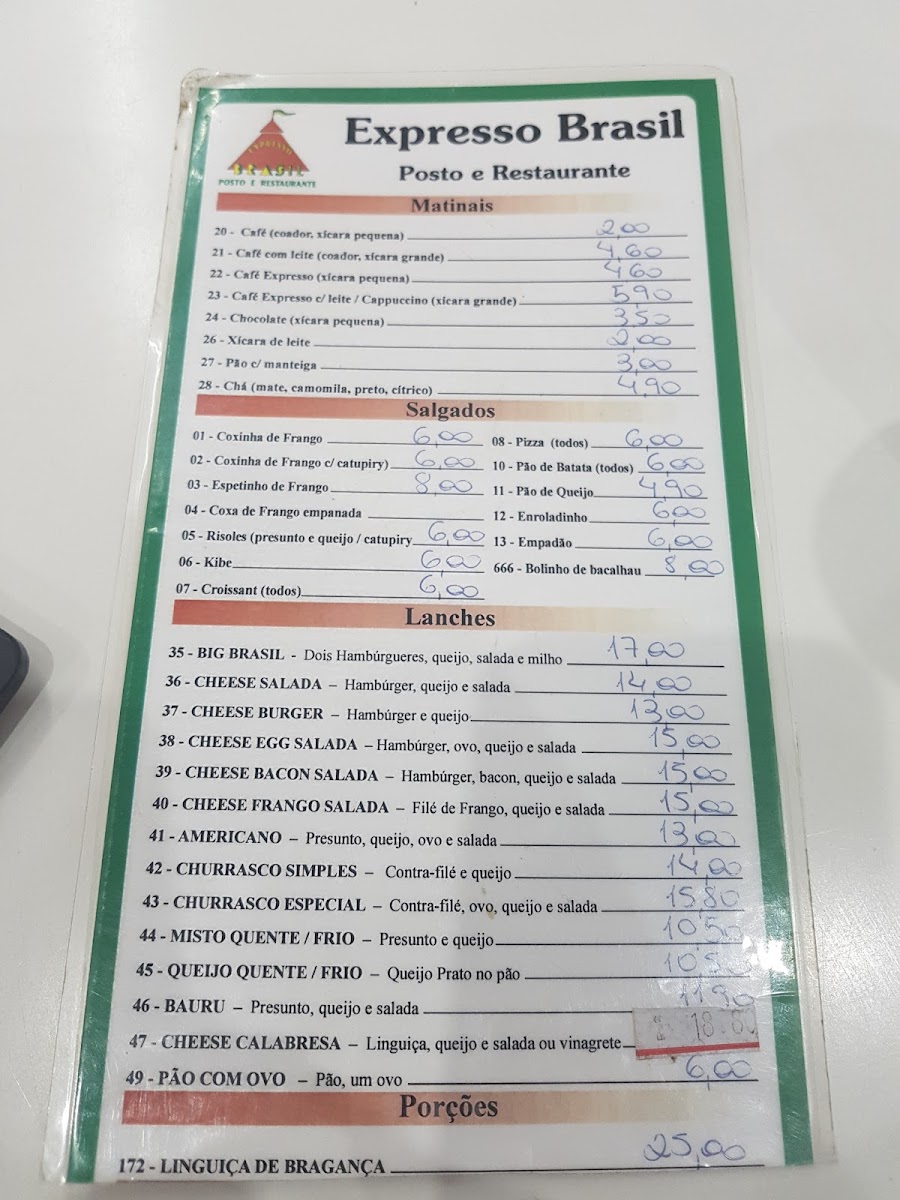 EXPRESSO
BRASIL
POSTO E RESTAURANTE
Expresso Brasil
Posto e Restaurante
Matinais
20 - Café (coador, xícara pequena) 2,00
21 - Café com leite (coador, xícara grande) 4,60
22 - Café Expresso (xícara pequena) 4,60
23 - Café Expresso c/ leite / Cappuccino (xícara grande) 5,90
24 - Chocolate (xícara pequena) 3,50
26 - Xícara de leite 2,00
27 - Pão c/ manteiga 3,00
28 - Chá (mate, camomila, preto, cítrico) 4,90
Salgados
01 - Coxinha de Frango 6,00
02 - Coxinha de Frango c/ catupiry) 6,00
03 - Espetinho de Frango 8,00
04 - Coxa de Frango empanada
05 - Risoles (presunto e queijo / catupiry 6,00
06 - Kibe 6,00
07 - Croissant (todos) 6,00
08 - Pizza (todos) 6,00
10 - Pão de Batata (todos) 6,00
11 - Pão de Queijo 4,90
12 - Enroladinho 6,00
13 - Empadão 6,00
666 - Bolinho de bacalhau 8,00
Lanches
35 - BIG BRASIL - Dois Hambúrgueres, queijo, salada e milho 17,00
36 - CHEESE SALADA – Hambúrger, queijo e salada 14,00
37 - CHEESE BURGER – Hambúrger e queijo 13,00
38 - CHEESE EGG SALADA – Hambúrger, ovo, queijo e salada 15,00
39 - CHEESE BACON SALADA – Hambúrger, bacon, queijo e salada 15,00
40 - CHEESE FRANGO SALADA – Filé de Frango, queijo e salada 15,00
41 - AMERICANO – Presunto, queijo, ovo e salada 13,00
42 - CHURRASCO SIMPLES – Contra-filé e queijo 14,00
43 - CHURRASCO ESPECIAL – Contra-filé, ovo, queijo e salada 15,80
44 - MISTO QUENTE / FRIO – Presunto e queijo 10,50
45 - QUEIJO QUENTE / FRIO – Queijo Prato no pão 10,50
46 - BAURU – Presunto, queijo e salada 11,90
47 - CHEESE CALABRESA – Linguiça, queijo e salada ou vinagrete
49 - PÃO COM OVO – Pão, um ovo 6,00
Porções
172 - LINGUIÇA DE BRAGANÇA 25,00